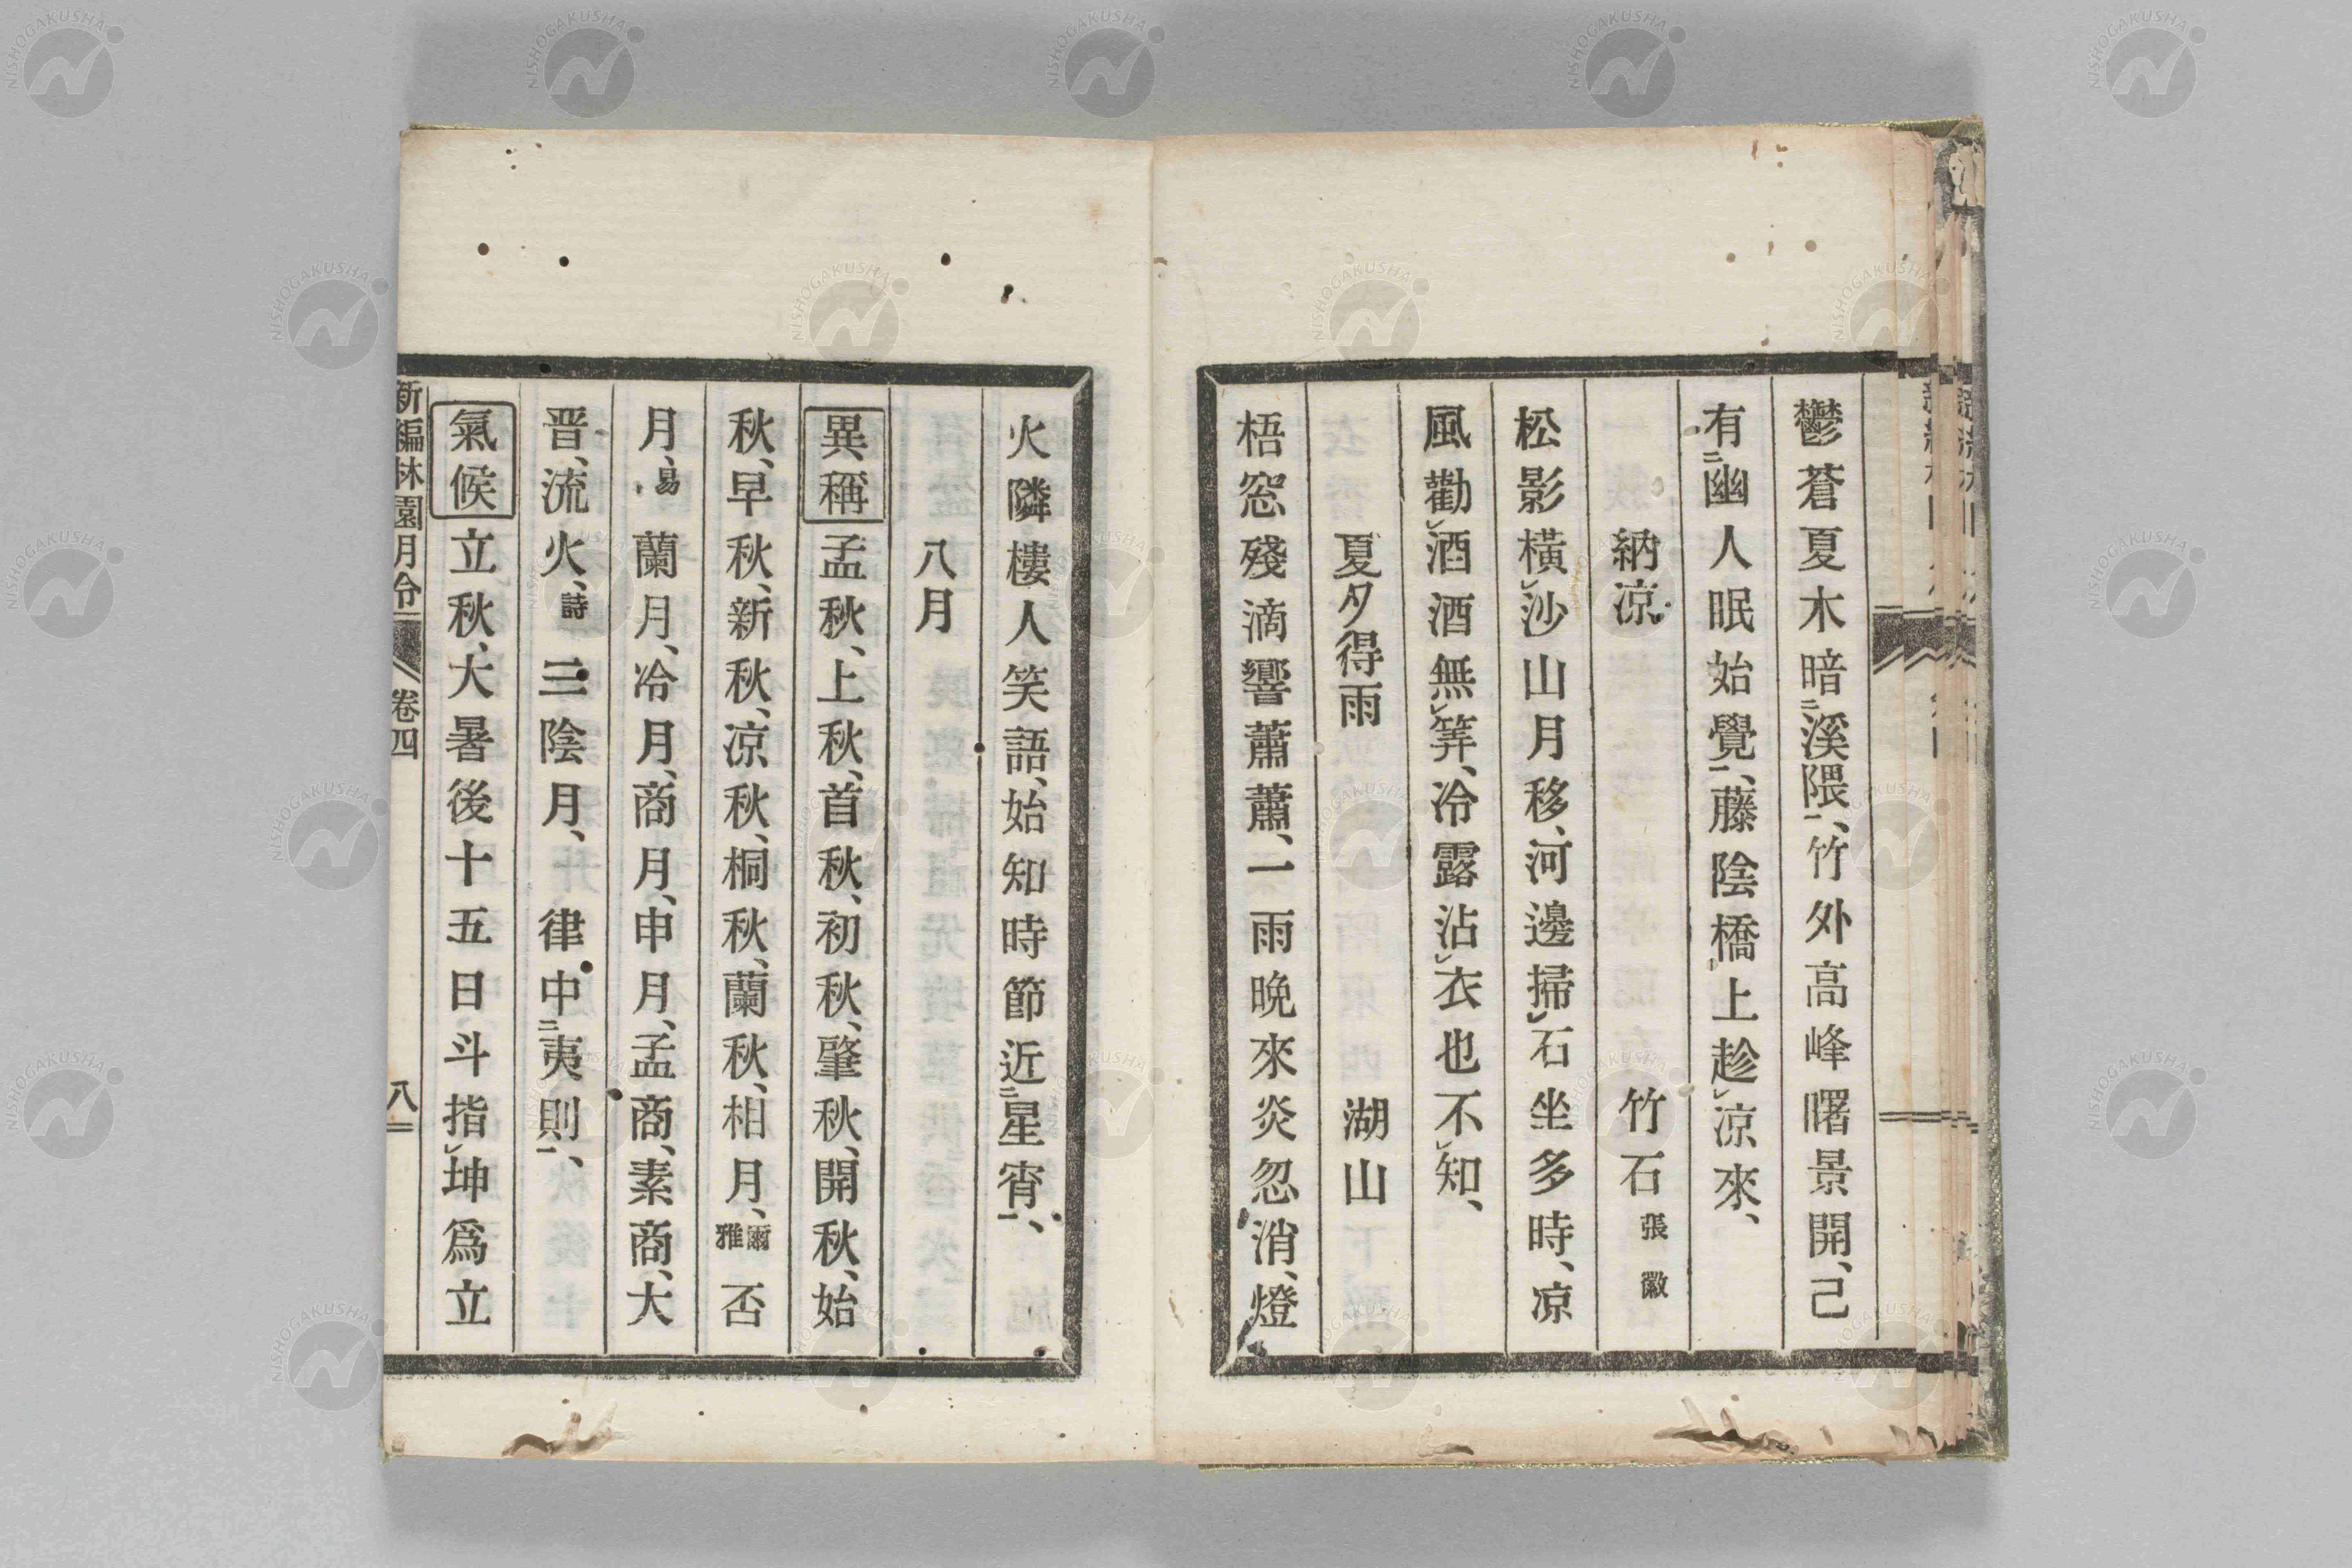 鬱蒼夏木暗㆓溪隈㆒、竹外高峰曙景開、己
有㆓幽人眠始覺㆒、藤陰橋上趁㆑凉來、
納凉 竹石 張徽
松影橫㆑沙山月移、河邊掃㆑石坐多時、凉
風勸㆑酒酒無㆑筭、冷露沾㆑衣也不㆑知、
夏夕得雨 湖山
梧窓殘滴響蕭蕭、一雨晩來炎忽消、燈
火隣樓人笑語、始知時節近㆓星宵㆒、
八月
異稱 孟秋、上秋、首秋、初秋、肇秋、開秋、始
秋、早秋、新秋、凉秋、桐秋、蘭秋、相月、爾雅 否
月、易 蘭月、冷月、商月、申月、孟商、素商、大
晋、流火、詩 三陰月、 律中㆓夷則㆒、
氣候 立秋、大暑後十五日斗指㆑坤爲立
新編林園月令 卷四 八
NISHOGAKUSHA